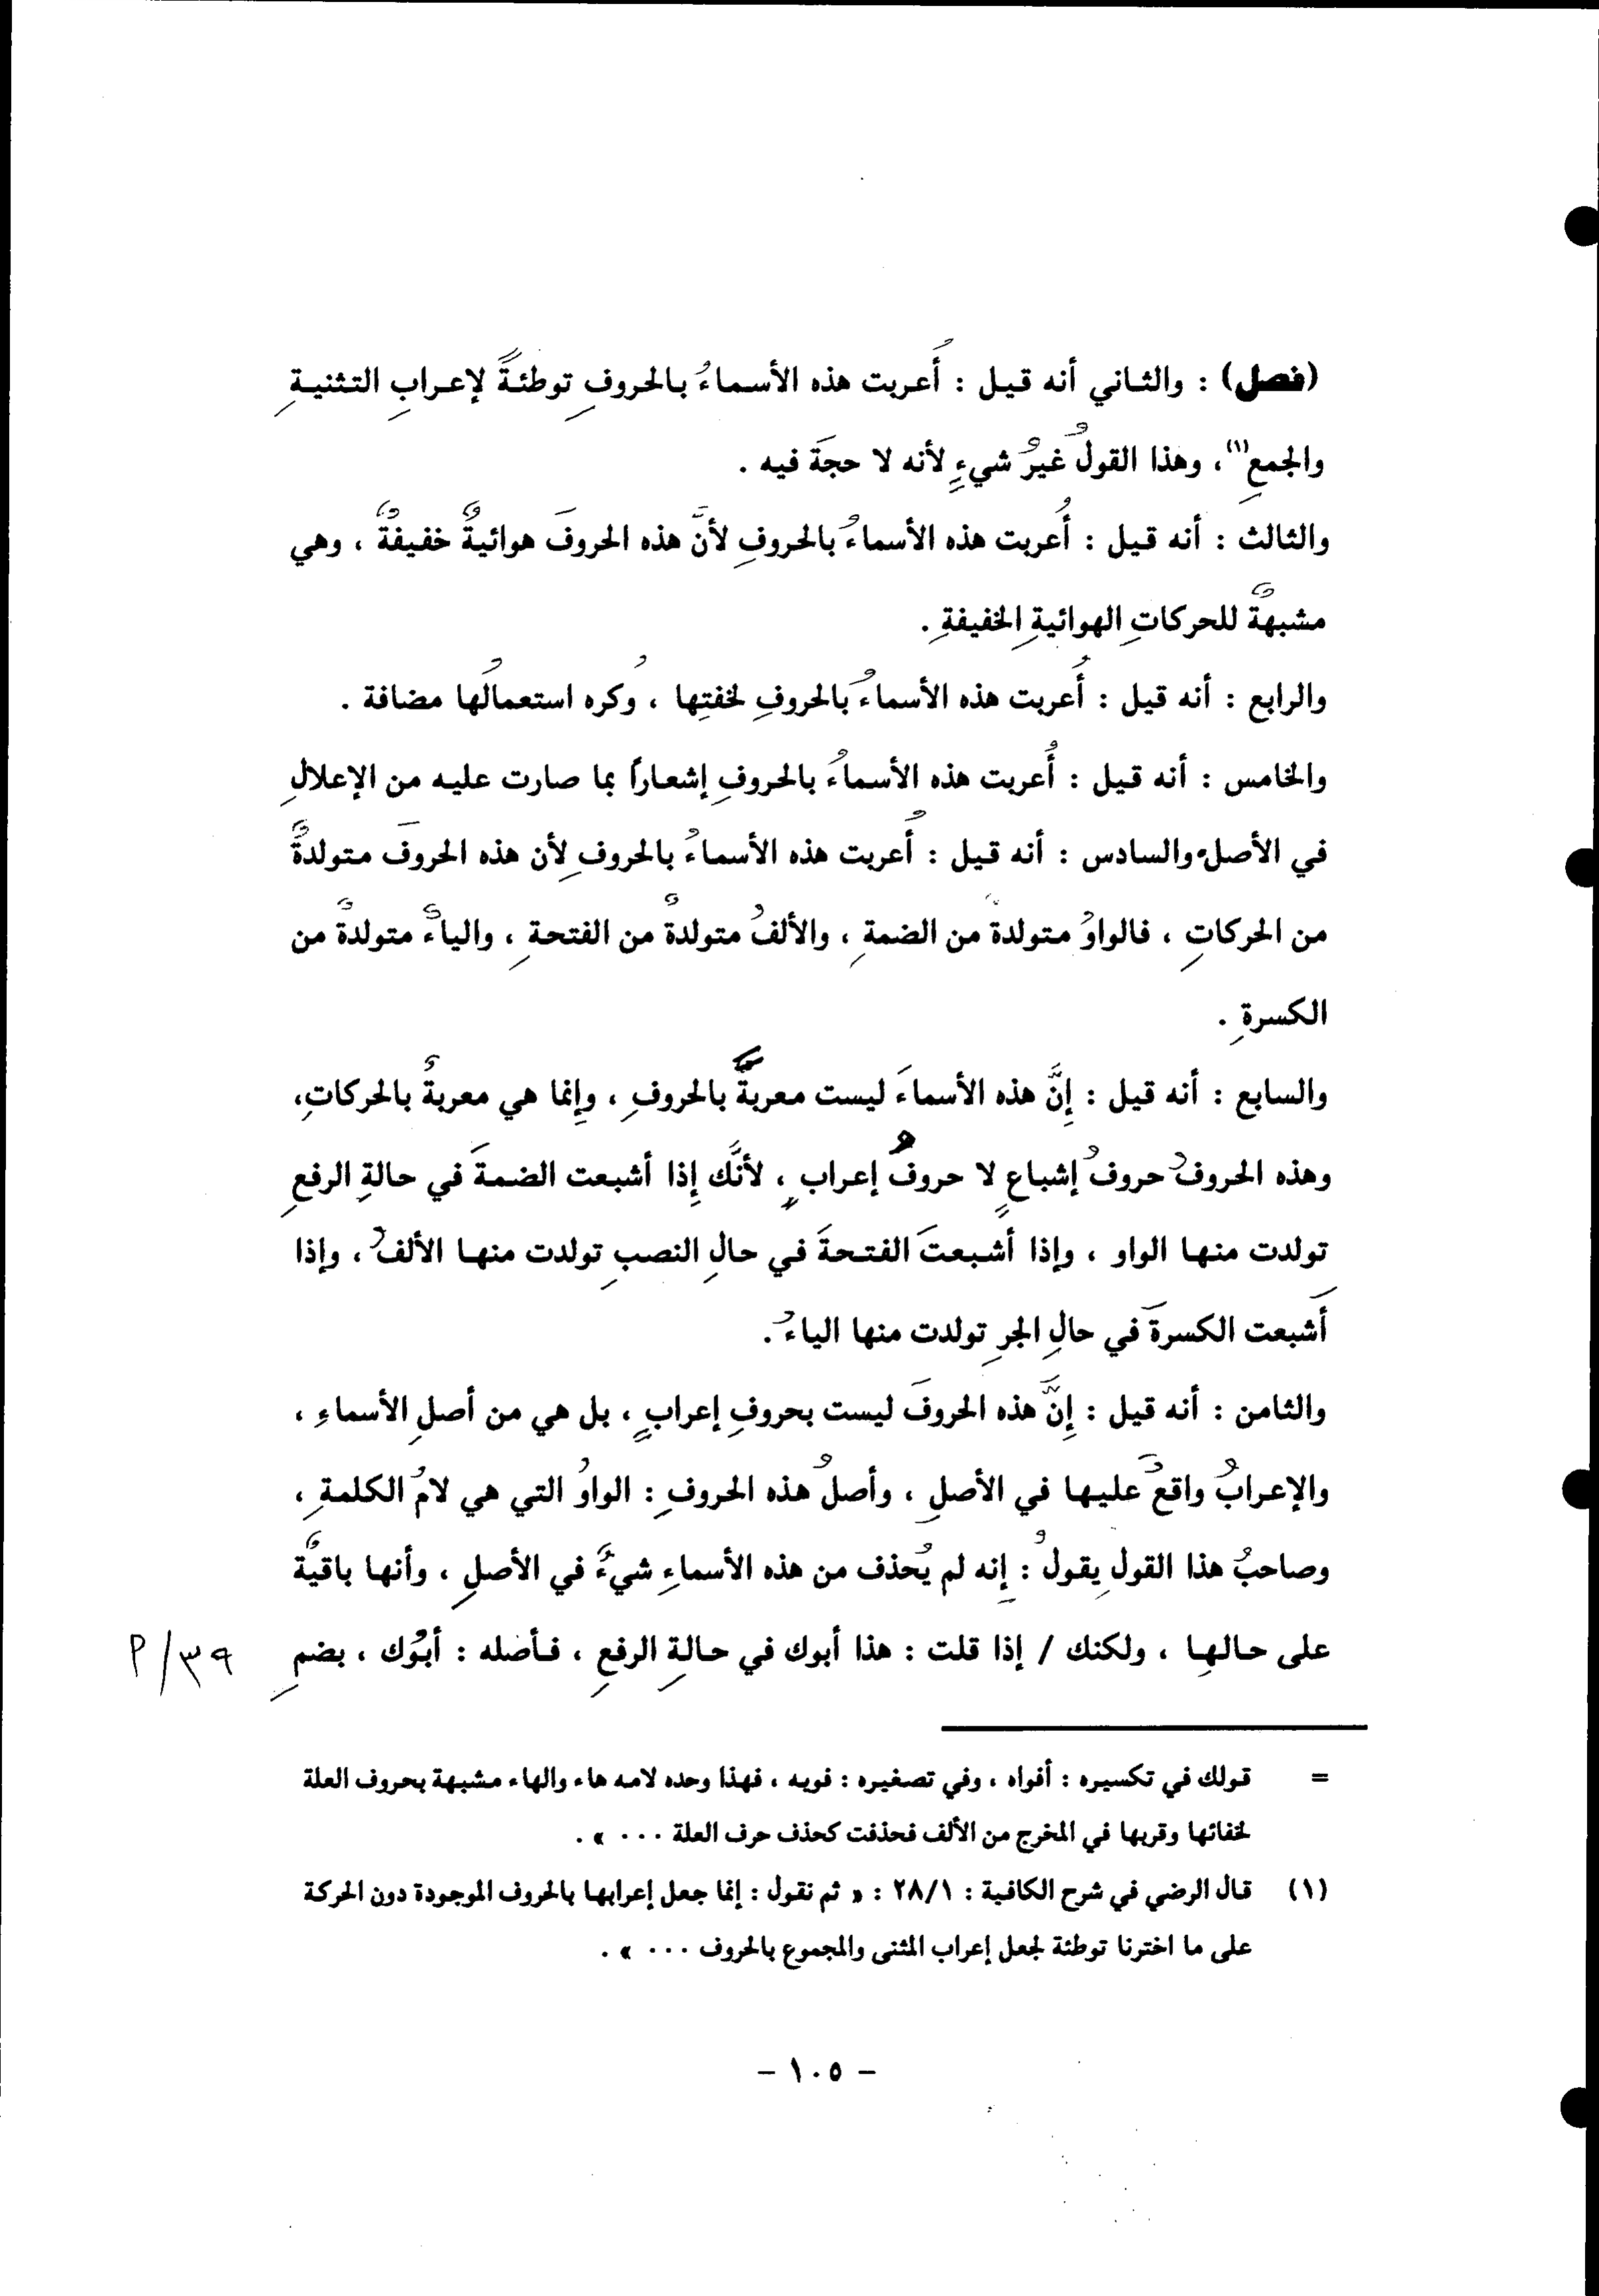 (فصل) : والثاني أنه قيل : أُعربت هذه الأسماءُ بالحروفِ توطئةً لإعرابِ التثنيةِ
والجمعِ(١)، وهذا القولُ غيرُ شيءٍ لأنه لا حجةَ فيه .
والثالث : أنه قيل : أُعربت هذه الأسماءُ بالحروفِ لأنَّ هذه الحروفَ هوائيةٌ خفيفةٌ ، وهي
مشبهةٌ للحركاتِ الهوائيةِ الخفيفةِ .
والرابع : أنه قيل : أُعربت هذه الأسماءُ بالحروفِ لخفتِها ، وكُره استعمالُها مضافة .
والخامس : أنه قيل : أُعربت هذه الأسماءُ بالحروفِ إشعاراً بما صارت عليه من الإعلالِ
في الأصل. والسادس : أنه قيل : أُعربت هذه الأسماءُ بالحروفِ لأن هذه الحروفَ متولدةٌ
من الحركاتِ ، فالواوُ متولدةٌ من الضمةِ ، والألفُ متولدةٌ من الفتحةِ ، والياءُ متولدةٌ من
الكسرةِ .
والسابع : أنه قيل : إِنَّ هذه الأسماءَ ليست معربةً بالحروفِ ، وإِنما هي معربةٌ بالحركاتِ،
وهذه الحروفُ حروفُ إشباعٍ لا حروفُ إعرابٍ ، لأنَّك إِذا أشبعت الضمةَ في حالةِ الرفعِ
تولدت منها الواو ، وإذا أشبعتَ الفتحةَ في حالِ النصبِ تولدت منها الألفُ ، وإذا
أَشبعت الكسرةَ في حالِ الجرِ تولدت منها الياءُ .
والثامن : أنه قيل : إِنَّ هذه الحروفَ ليست بحروفِ إعرابٍ ، بل هي من أصلِ الأسماءِ ،
والإعرابُ واقعٌ عليها في الأصلِ ، وأصلُ هذه الحروفِ : الواوُ التي هي لامُ الكلمةِ ،
وصاحبُ هذا القولِ يقولُ : إِنه لم يُحذف من هذه الأسماءِ شيءٌ في الأصلِ ، وأنها باقيةٌ
على حالِها ، ولكنك / إذا قلت : هذا أبوك في حالةِ الرفعِ ، فأصله : أبَوُك ، بضمِ
٣٩/م
= قولك في تكسيره : أفواه ، وفي تصغيره : فويه ، فهذا وحده لامه هاء والهاء مشبهة بحروف العلة
لخفائها وقربها في المخرج من الألف فحذفت كحذف حرف العلة ... » .
(١) قال الرضي في شرح الكافية : ٢٨/١ : « ثم نقول : إنما جعل إعرابها بالحروف الموجودة دون الحركة
على ما اخترنا توطئة لجعل إعراب المثنى والمجموع بالحروف ... » .
- ١٠٥ -